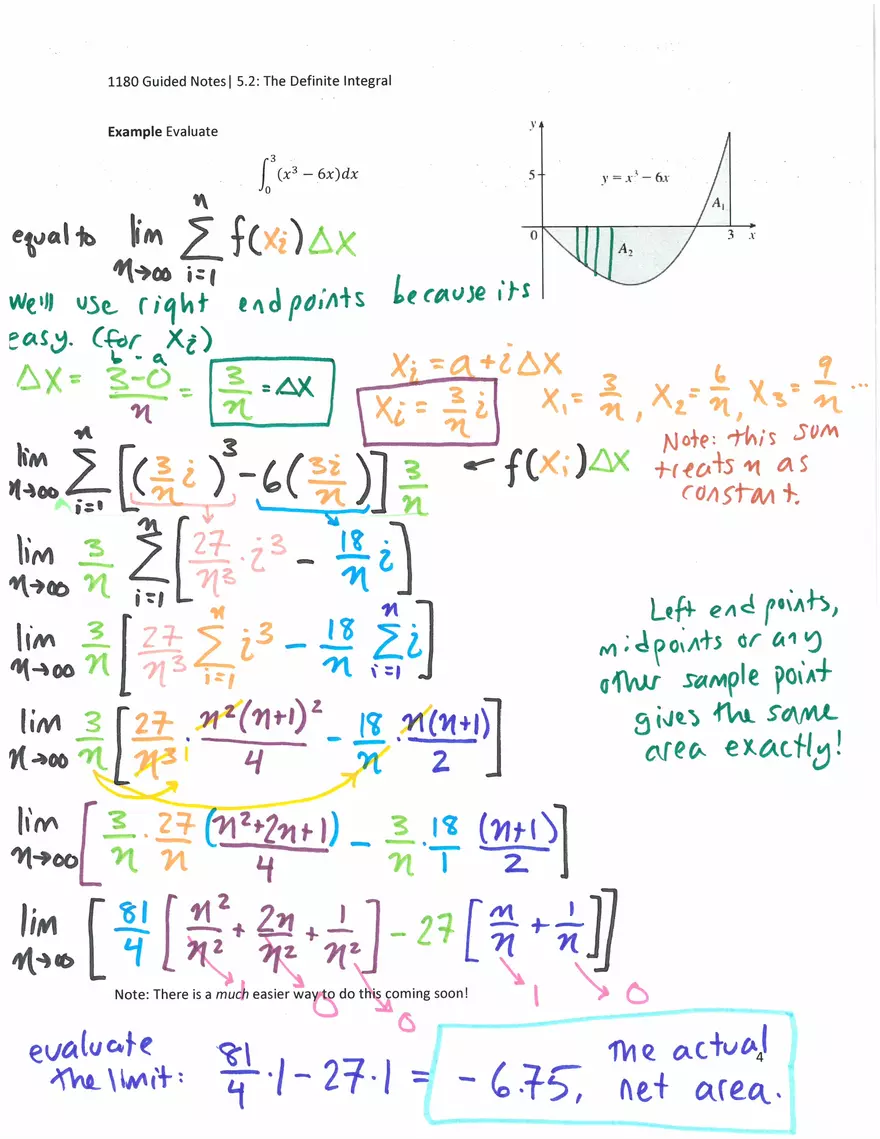 1180 Guided Notes| 5.2: The Definite Integral
Example Evaluate
∫₀³ (x³ − 6x)dx
y
5
y = x³ − 6x
A₁
0
3 x
A₂
equal to lim n→∞ Σ i=1 n f(xᵢ)Δx
We'll use right endpoints because its
easy. (for xᵢ)
b - a
Δx = 3-0/n = 3/n = Δx
xᵢ = a + iΔx
xᵢ = 3/n i
x₁ = 3/n, x₂ = 6/n, x₃ = 9/n ...
lim n→∞ Σ i=1 n [(3/n i)³ - 6(3i/n)] 3/n ← f(xᵢ)Δx
Note: this sum
treats n as
constant.
lim n→∞ 3/n Σ i=1 n [27/n³ · i³ - 18/n i]
lim n→∞ 3/n [27/n³ Σ i=1 n i³ - 18/n Σ i=1 n i]
Left endpoints,
midpoints or any
other sample point
gives the same
area exactly!
lim n→∞ 3/n [27/n³ · n²(n+1)²/4 - 18/n · n(n+1)/2]
1
lim n→∞ [3/n · 27/n (n²+2n+1)/4 - 3/n · 18/1 (n+1)/2]
lim n→∞ [81/4 [n²/n² + 2n/n² + 1/n²] - 27 [n/n + 1/n]]
1 0 0 1 0
Note: There is a much easier way to do this coming soon!
evaluate
the limit: 81/4 · 1 - 27 · 1 = -6.75, the actual
net area.
4